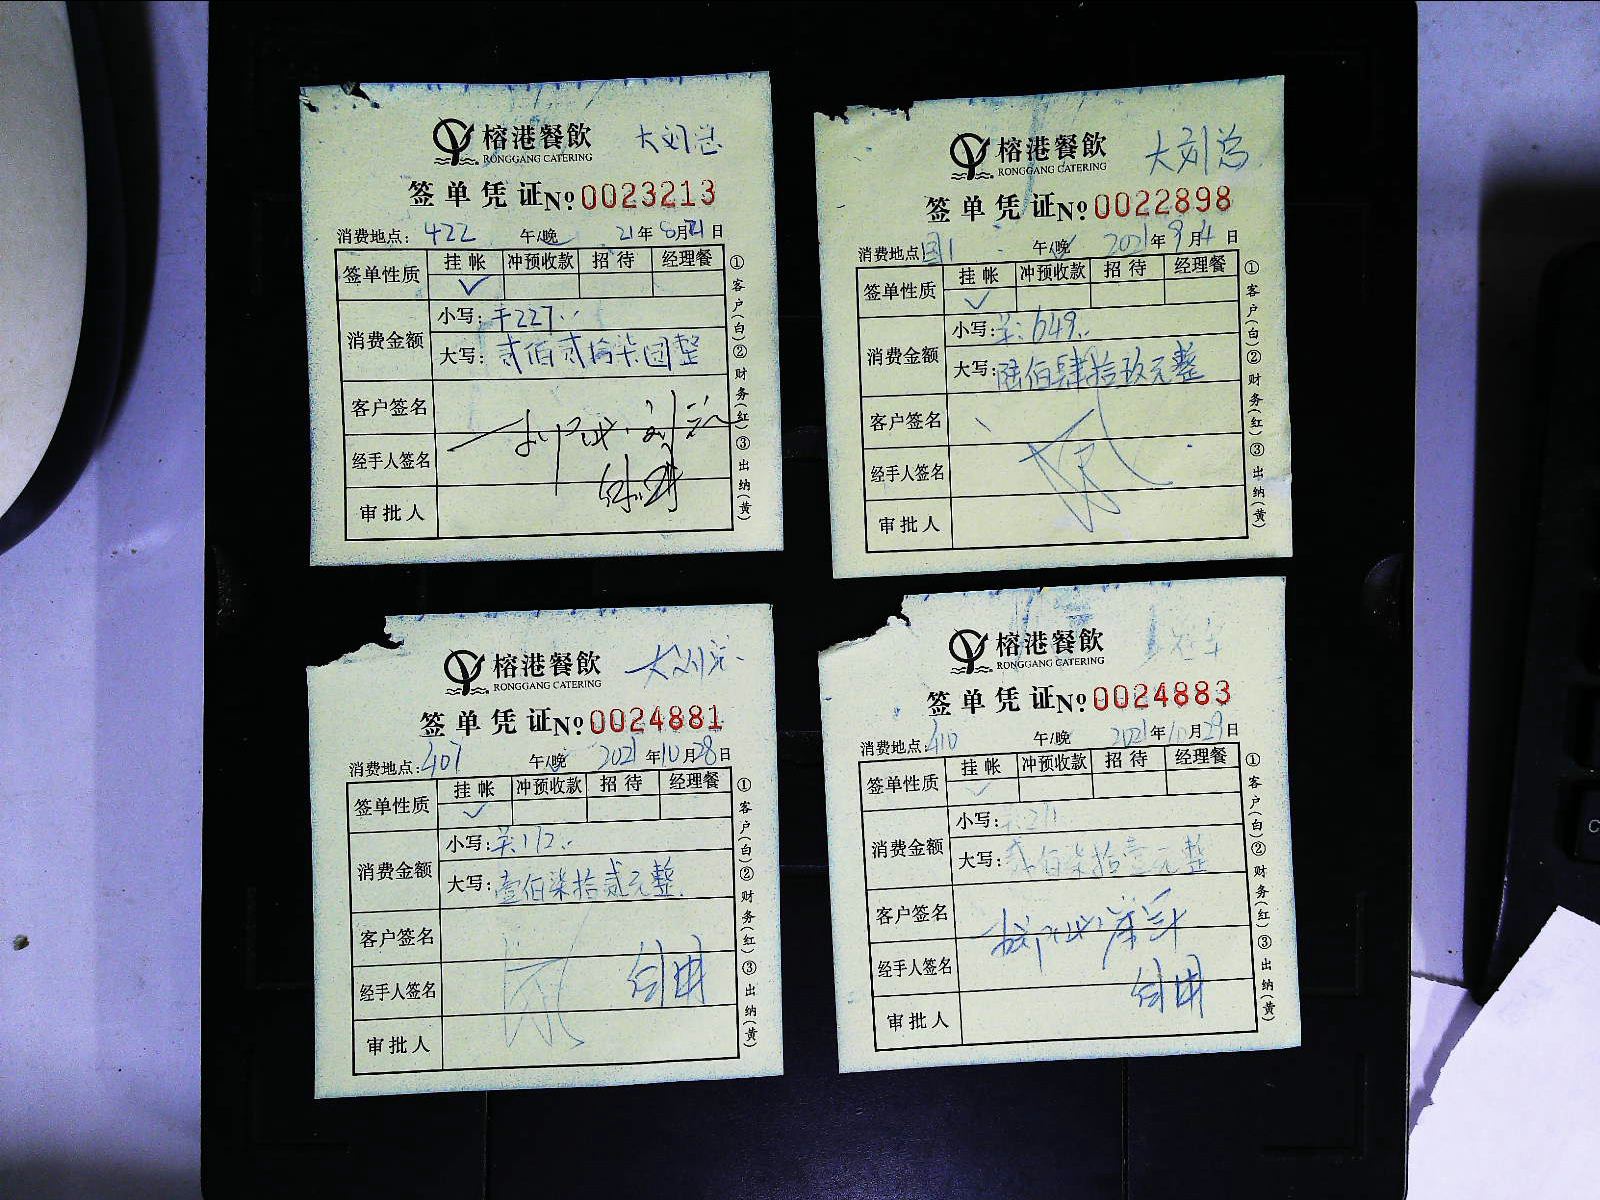 榕港餐飲 大刘总
RONGGANG CATERING
签单凭证 No 0023213
消费地点: 422 午/晚 21年8月21日
签单性质 挂帐 冲预收款 招待 经理餐
✓
消费金额 小写: 227..
大写: 贰佰贰拾柒圆整
客户签名
经手人签名
审批人
①客户(白)②财务(红)③出纳(黄)
榕港餐飲 大刘总
RONGGANG CATERING
签单凭证 No 0022898
消费地点 午/晚 2021年9月4日
签单性质 挂帐 冲预收款 招待 经理餐
✓
消费金额 小写: 649..
大写: 陆佰肆拾玖元整
客户签名
经手人签名
审批人
①客户(白)②财务(红)③出纳(黄)
榕港餐飲 大刘总
RONGGANG CATERING
签单凭证 No 0024881
消费地点: 407 午/晚 2021年10月28日
签单性质 挂帐 冲预收款 招待 经理餐
✓
消费金额 小写: 172..
大写: 壹佰柒拾贰元整
客户签名
经手人签名
审批人
①客户(白)②财务(红)③出纳(黄)
榕港餐飲
RONGGANG CATERING
签单凭证 No 0024883
消费地点: 410 午/晚 2021年10月29日
签单性质 挂帐 冲预收款 招待 经理餐
✓
消费金额 小写: 271
大写: 贰佰柒拾壹元整
客户签名
经手人签名
审批人
①客户(白)②财务(红)③出纳(黄)